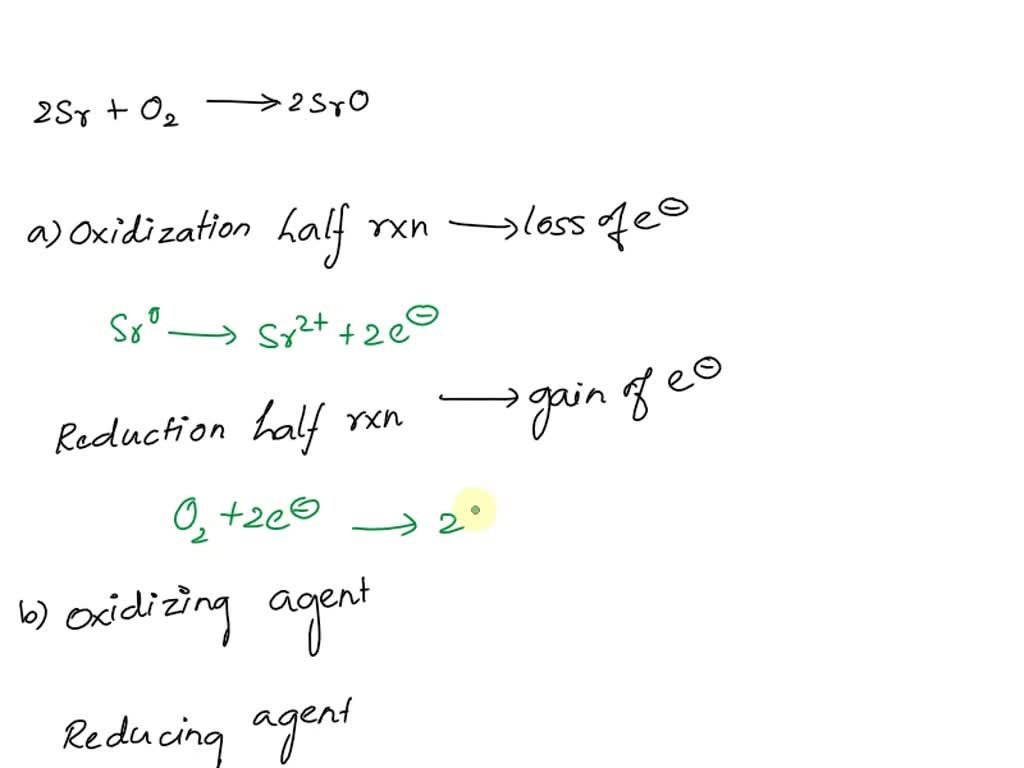 2Sr + O₂ ⟶ 2SrO
a) Oxidization half rxn ⟶ loss of e⊖
Sr⁰ ⟶ Sr²⁺ + 2e⊖
Reduction half rxn ⟶ gain of e⊖
O₂ + 2e⊖ ⟶ 2
b) Oxidizing agent
Reducing agent